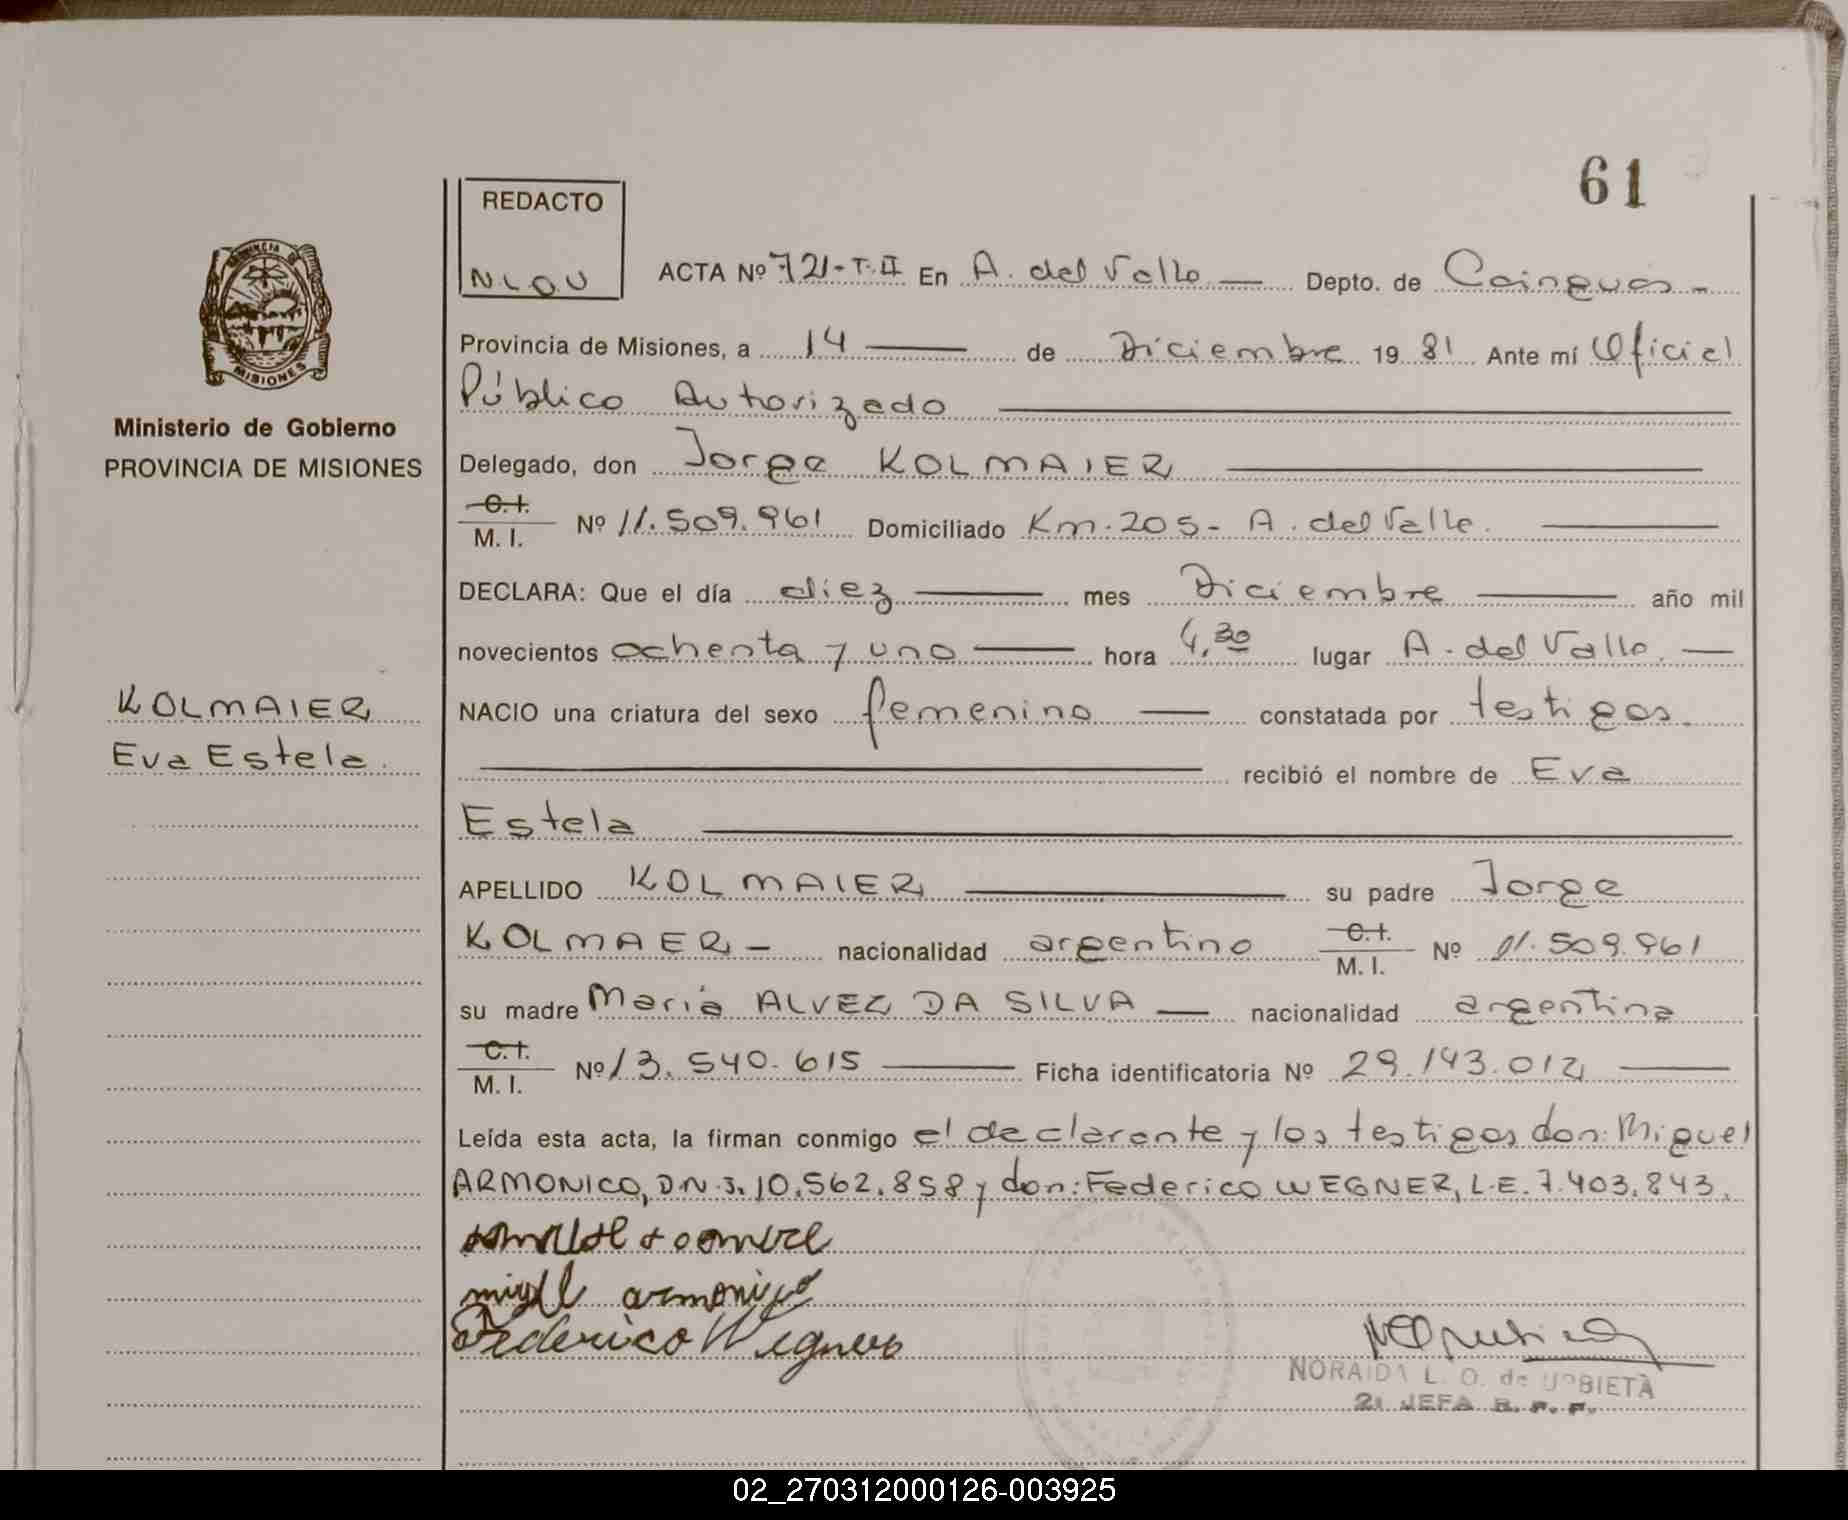 61
REDACTO
N L O U
PROVINCIA DE
MISIONES
ACTA Nº 721-T.II En A. del Valle Depto. de Cainguás-
Provincia de Misiones, a 14 de Diciembre 19 81 Ante mí Oficial
Público Autorizado
Ministerio de Gobierno
PROVINCIA DE MISIONES
Delegado, don Jorge KOLMAIER
C.I.
M. I. Nº 11.509.961 Domiciliado Km.205- A. del Valle.
DECLARA: Que el día diez mes Diciembre año mil
novecientos ochenta y uno hora 4,30 lugar A. del Valle.
KOLMAIER
Eva Estela.
NACIO una criatura del sexo femenino constatada por testigos.
recibió el nombre de Eva
Estela
APELLIDO KOLMAIER su padre Jorge
KOLMAER- nacionalidad argentino C.I. M. I. Nº 11.509.961
su madre Maria ALVEZ DA SILVA nacionalidad argentina
C.I.
M. I. Nº 13.540.615 Ficha identificatoria Nº 29.143.012
Leída esta acta, la firman conmigo el declarante y los testigos don: Miguel
ARMONICO, D.N.J. 10.562.858 y don: Federico WEGNER, L.E. 7.403.843.
armonico
Federico Wegner
NORAIDA L. O. de URBIETA
2ı JEFA R. P. P.
02_270312000126-003925